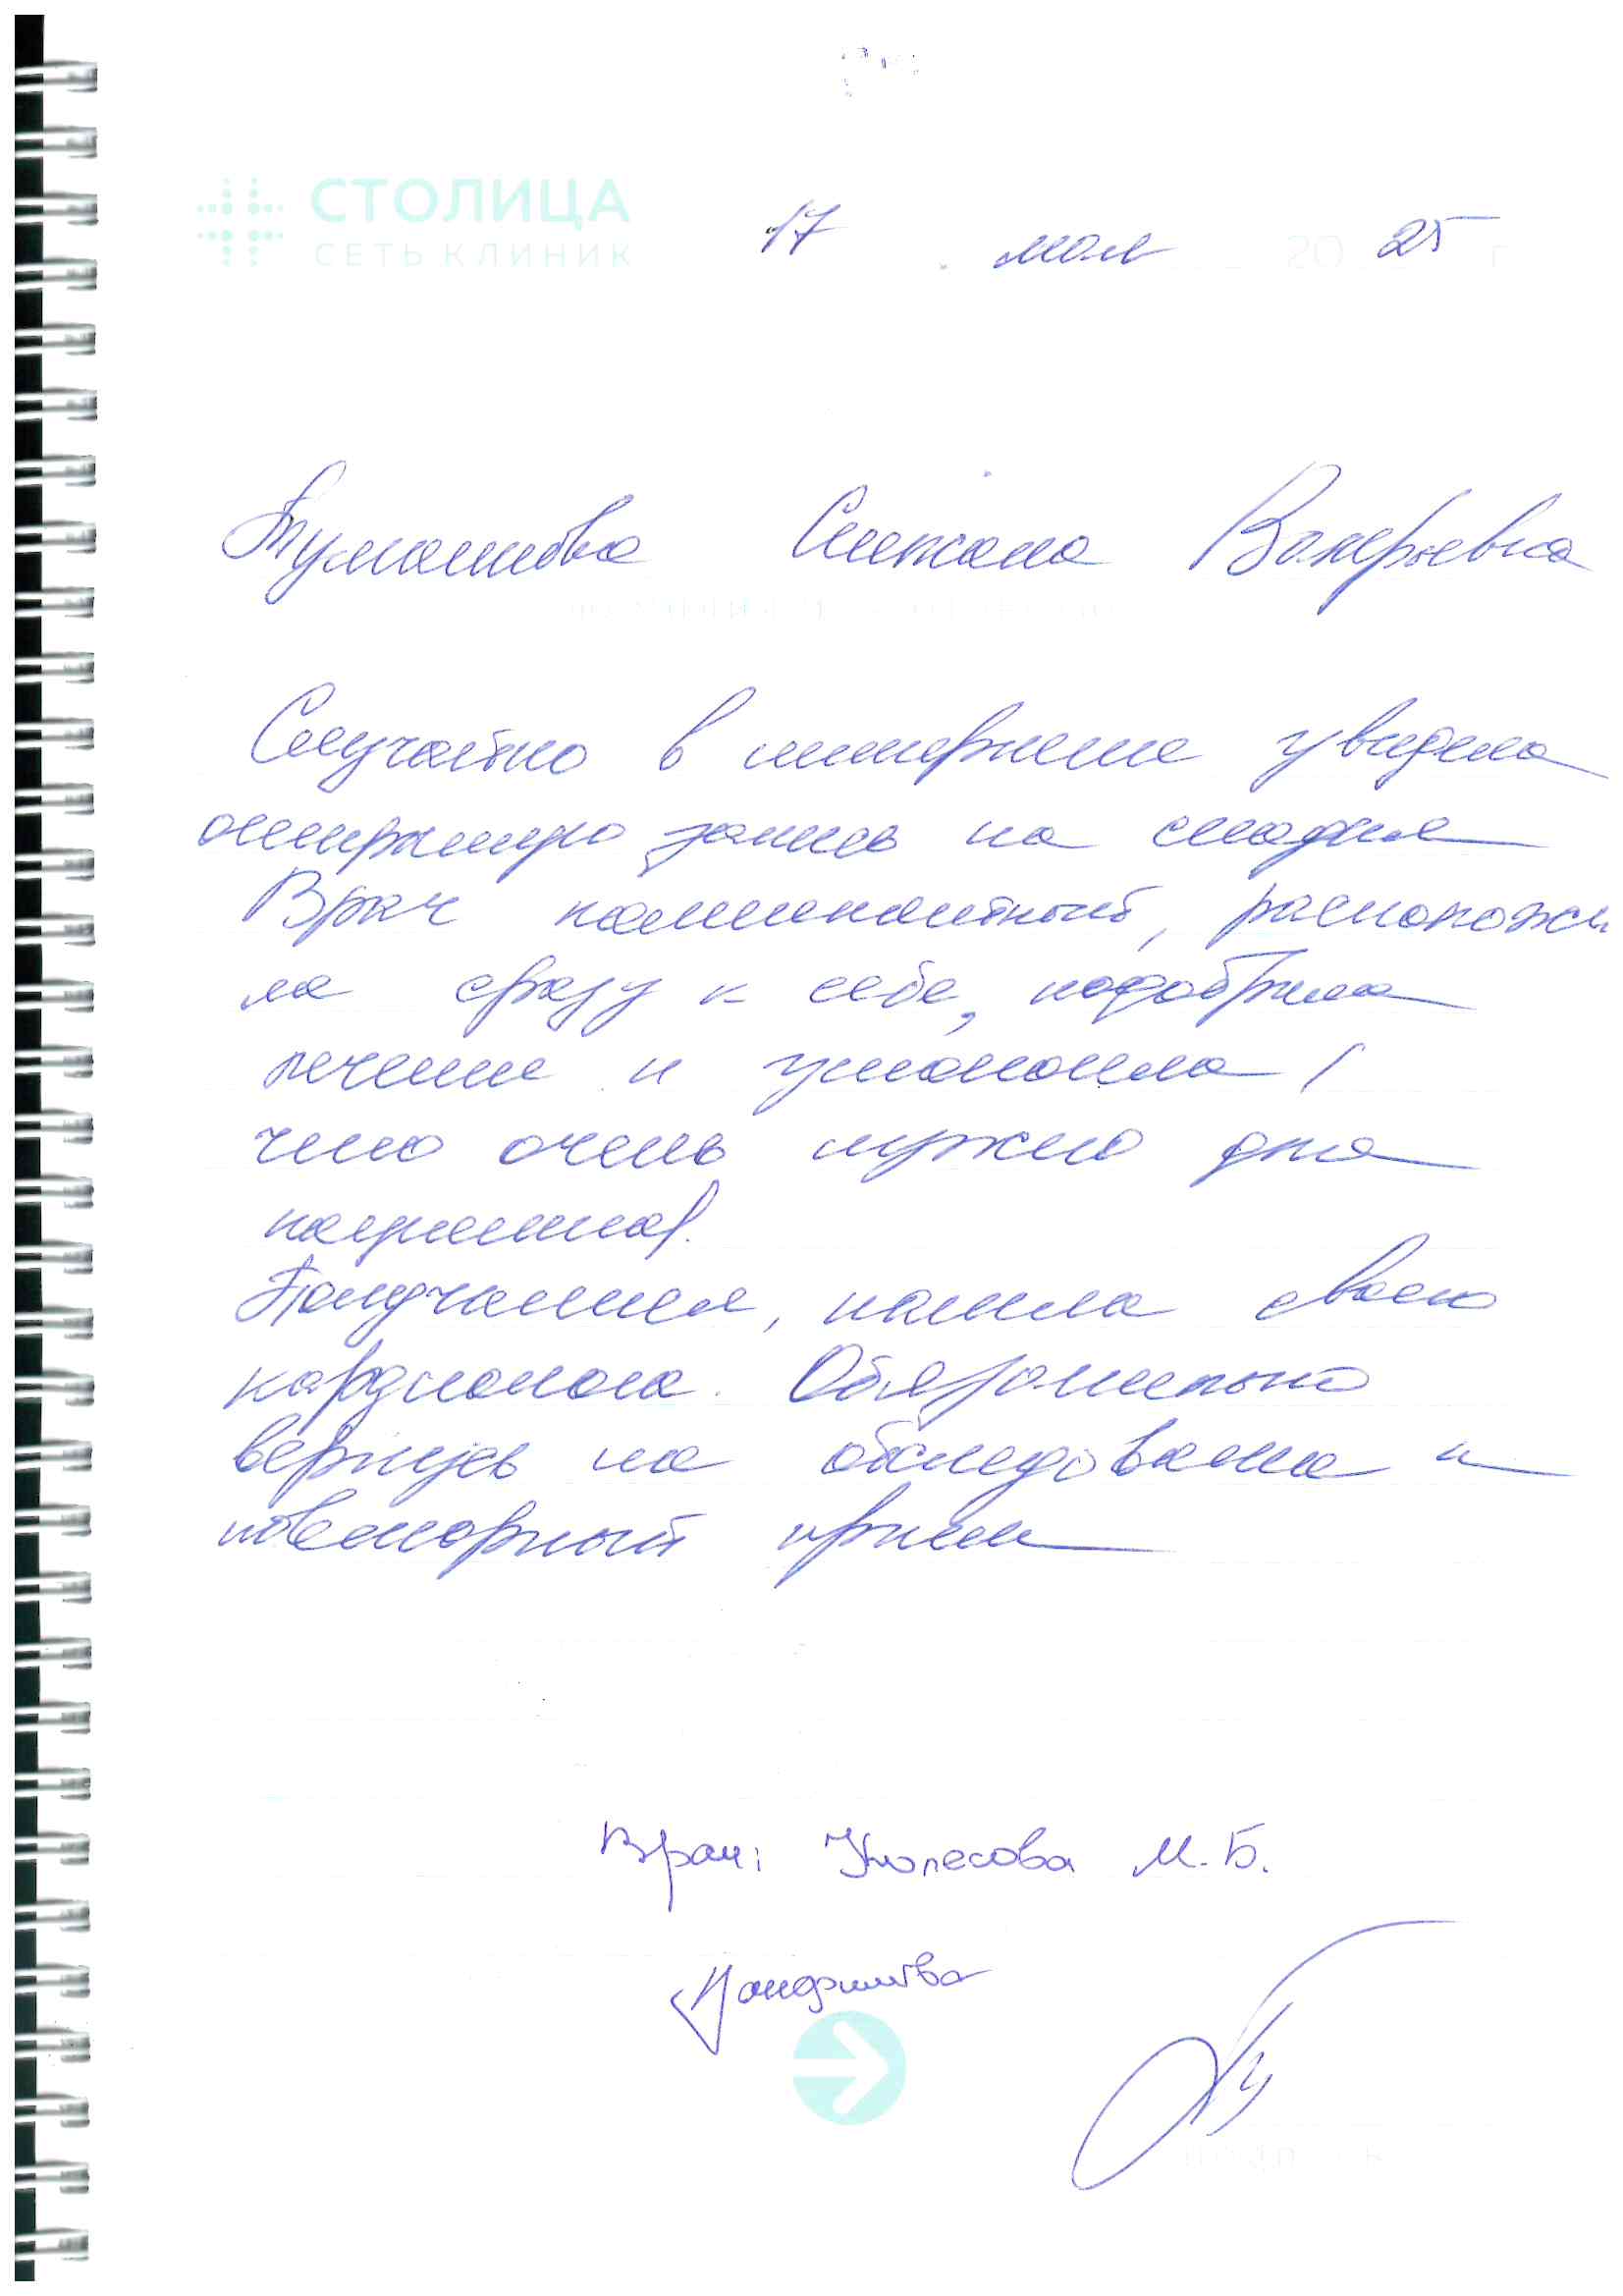 СТОЛИЦА
СЕТЬ КЛИНИК
17 мая 2025 г
Туманова Снежана Валерьевна
Случайно в интернете увидела
открытую запись на сегодня
Врач компетентный, расположи
ла сразу к себе, подобрала
лечение и успокоила!
что очень нужно для
пациента.
Получается, нашла своего
кардиолога. Обязательно
вернусь на обследование и
повторный прием
Врач: Колесова М.Б.
подпись